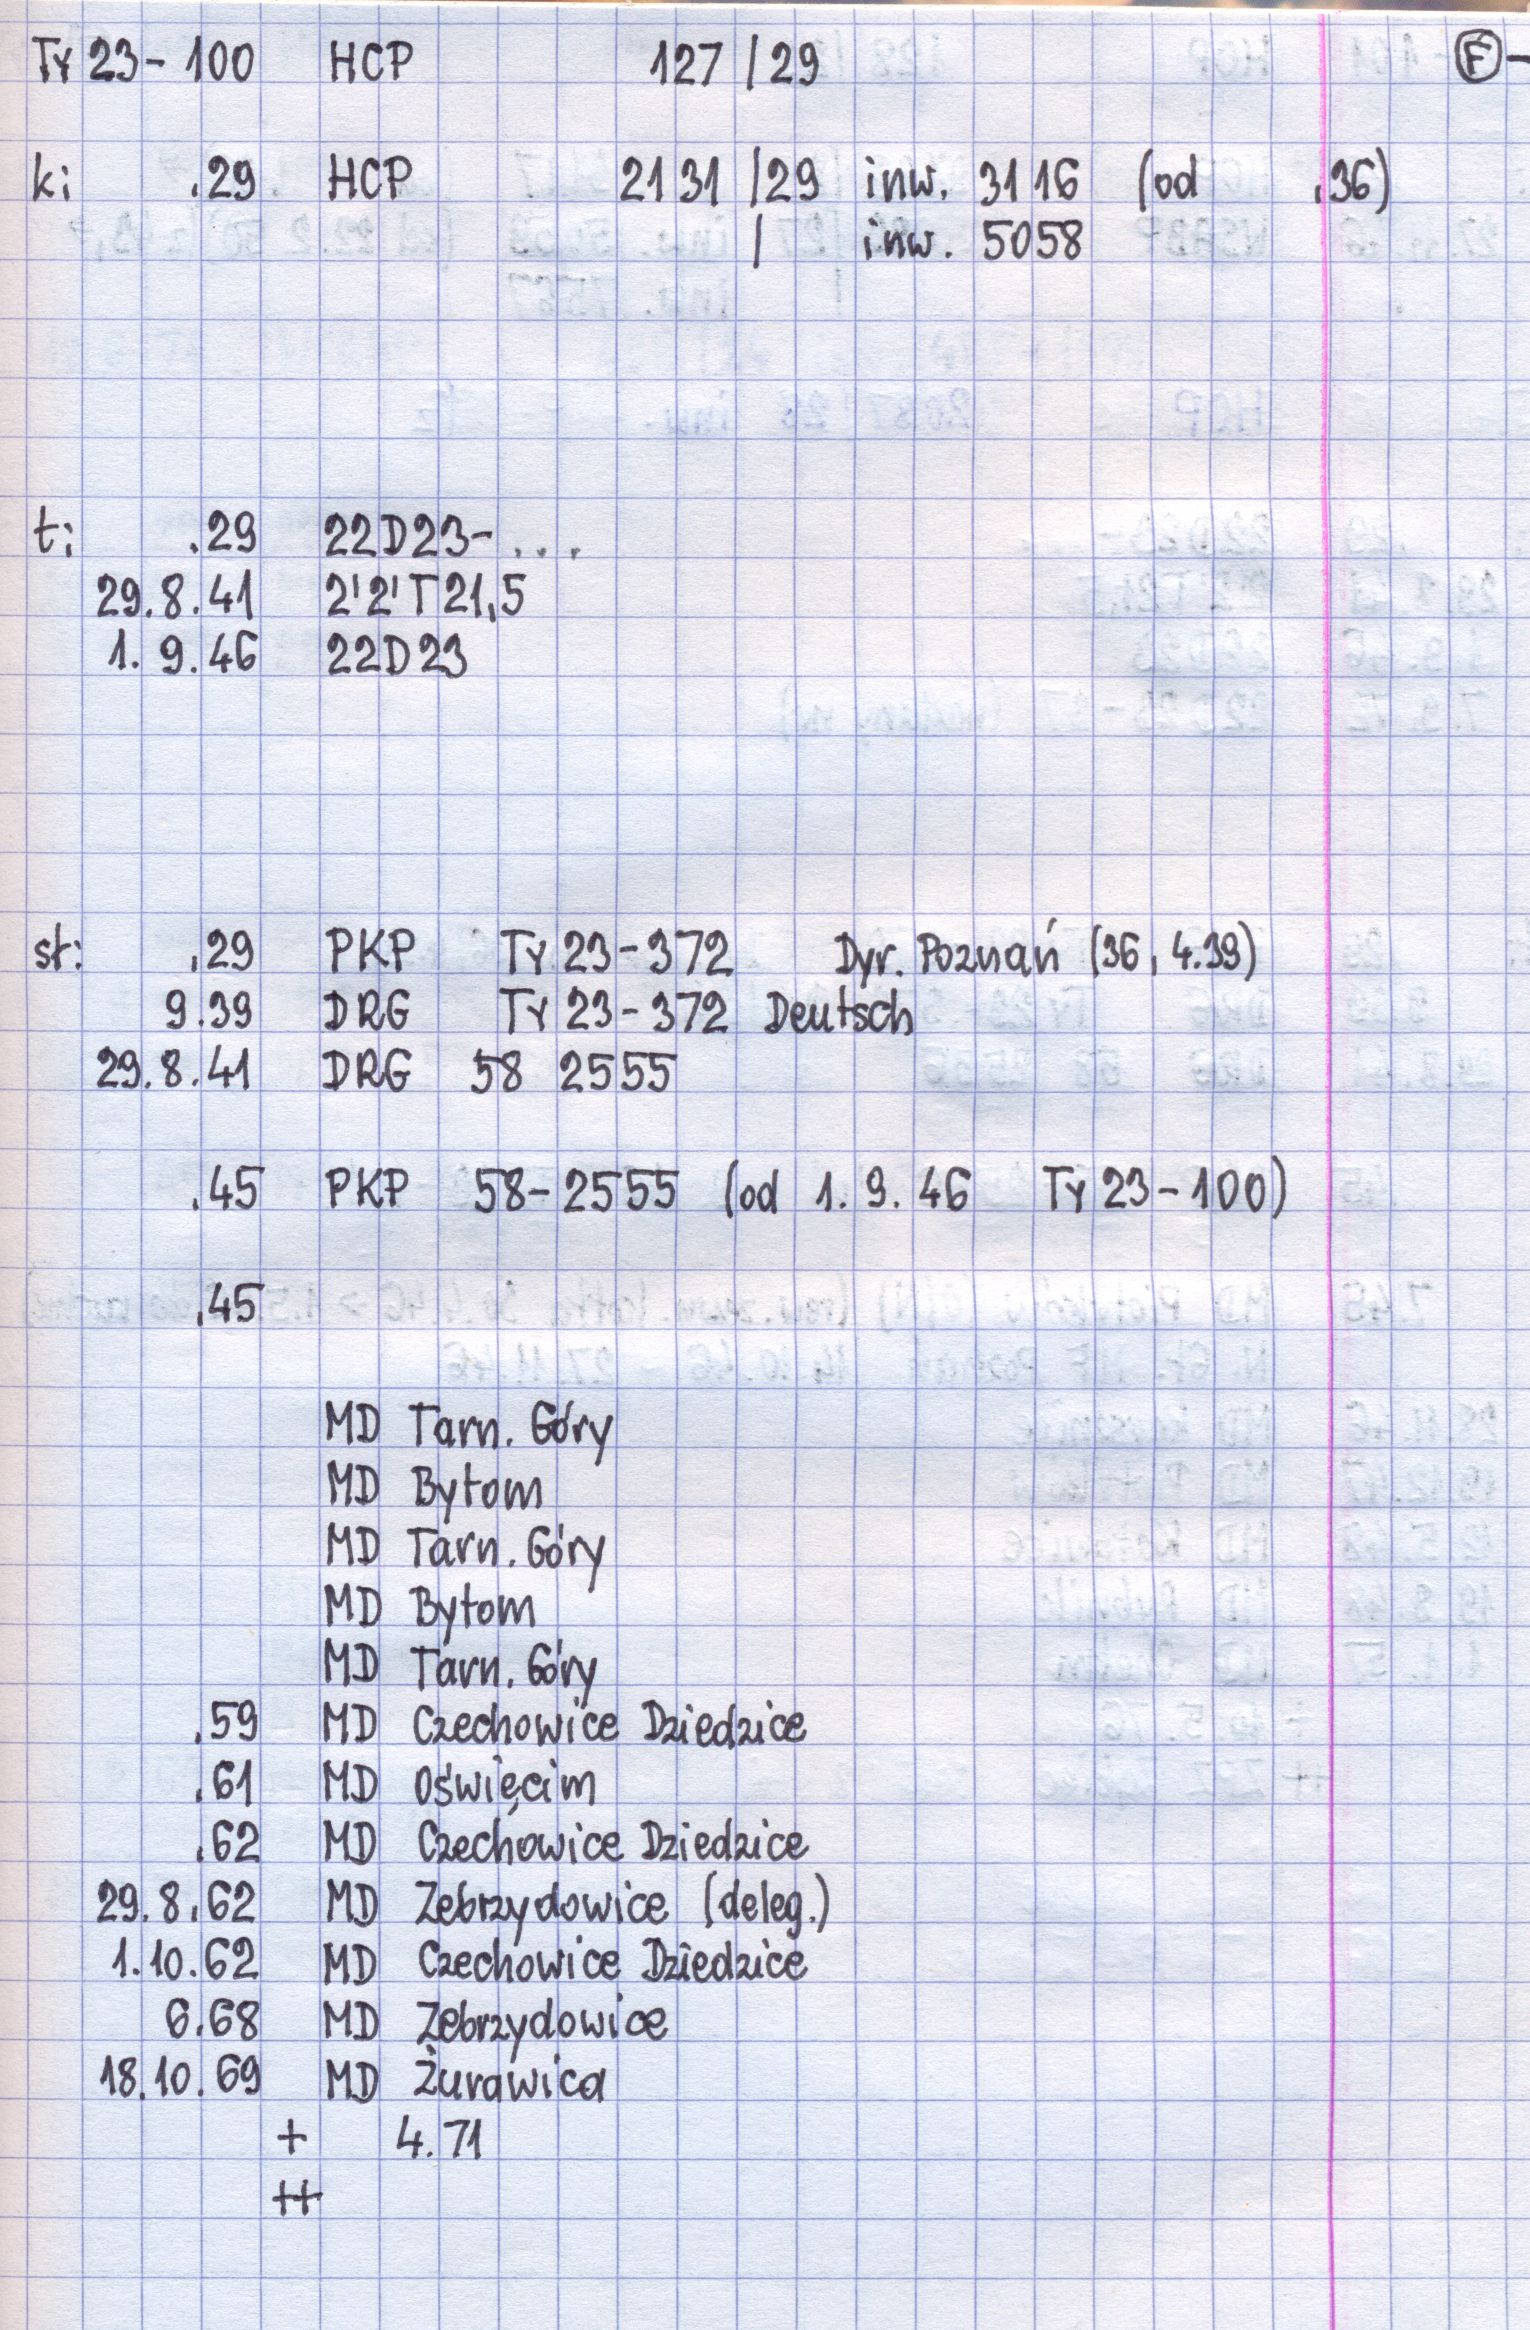 Ty 23-100 HCP 127 / 29 F-
k: .29 HCP 2131 / 29 inw. 3116 (od .36)
/ inw. 5058
t: .29 22D23-...
29.8.41 2'2'T21,5
1.9.46 22D23
st: .29 PKP Ty 23-372 Dyr. Poznań (36, 4.39)
9.39 DRG Ty 23-372 Deutsch
29.8.41 DRG 58 2555
.45 PKP 58-2555 (od 1.9.46 Ty 23-100)
.45
MD Tarn. Góry
MD Bytom
MD Tarn. Góry
MD Bytom
MD Tarn. Góry
.59 MD Czechowice Dziedzice
.61 MD Oświęcim
.62 MD Czechowice Dziedzice
29.8.62 MD Zebrzydowice (deleg.)
1.10.62 MD Czechowice Dziedzice
6.68 MD Zebrzydowice
18.10.69 MD Żurawica
+ 4.71
++